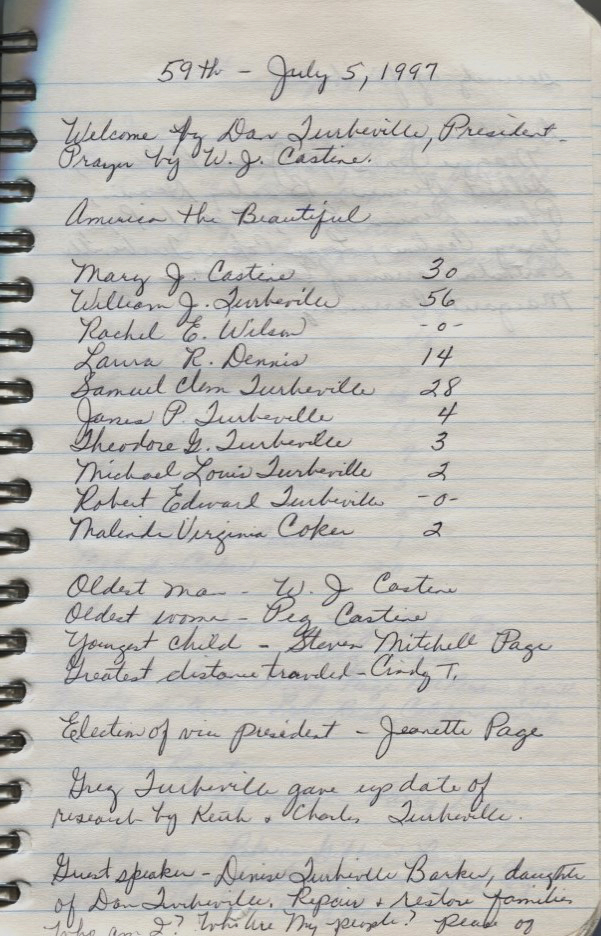 59th - July 5, 1997
Welcome by Dan Turbeville, President.
Prayer by W. J. Castine.
America the Beautiful
Mary J. Castine 30
William J. Turbeville 56
Rachel E. Wilson -0-
Laura R. Dennis 14
Samuel Clem Turbeville 28
James P. Turbeville 4
Theodore G. Turbeville 3
Michael Louis Turbeville 2
Robert Edward Turbeville -0-
Malinda Virginia Coker 2
Oldest man - W. J Castine
Oldest wome - Peg Castine
Youngest child - Steven Mitchell Page
Greatest distance traveled - Cindy T.
Election of vice president - Jeanette Page
Greg Turbeville gave up date of
research by Keith & Charles Turbeville.
Guest speaker - Denise Turbeville Barker, daughter
of Dan Turbeville. Repair & restore families
Who am I? Who are My people?